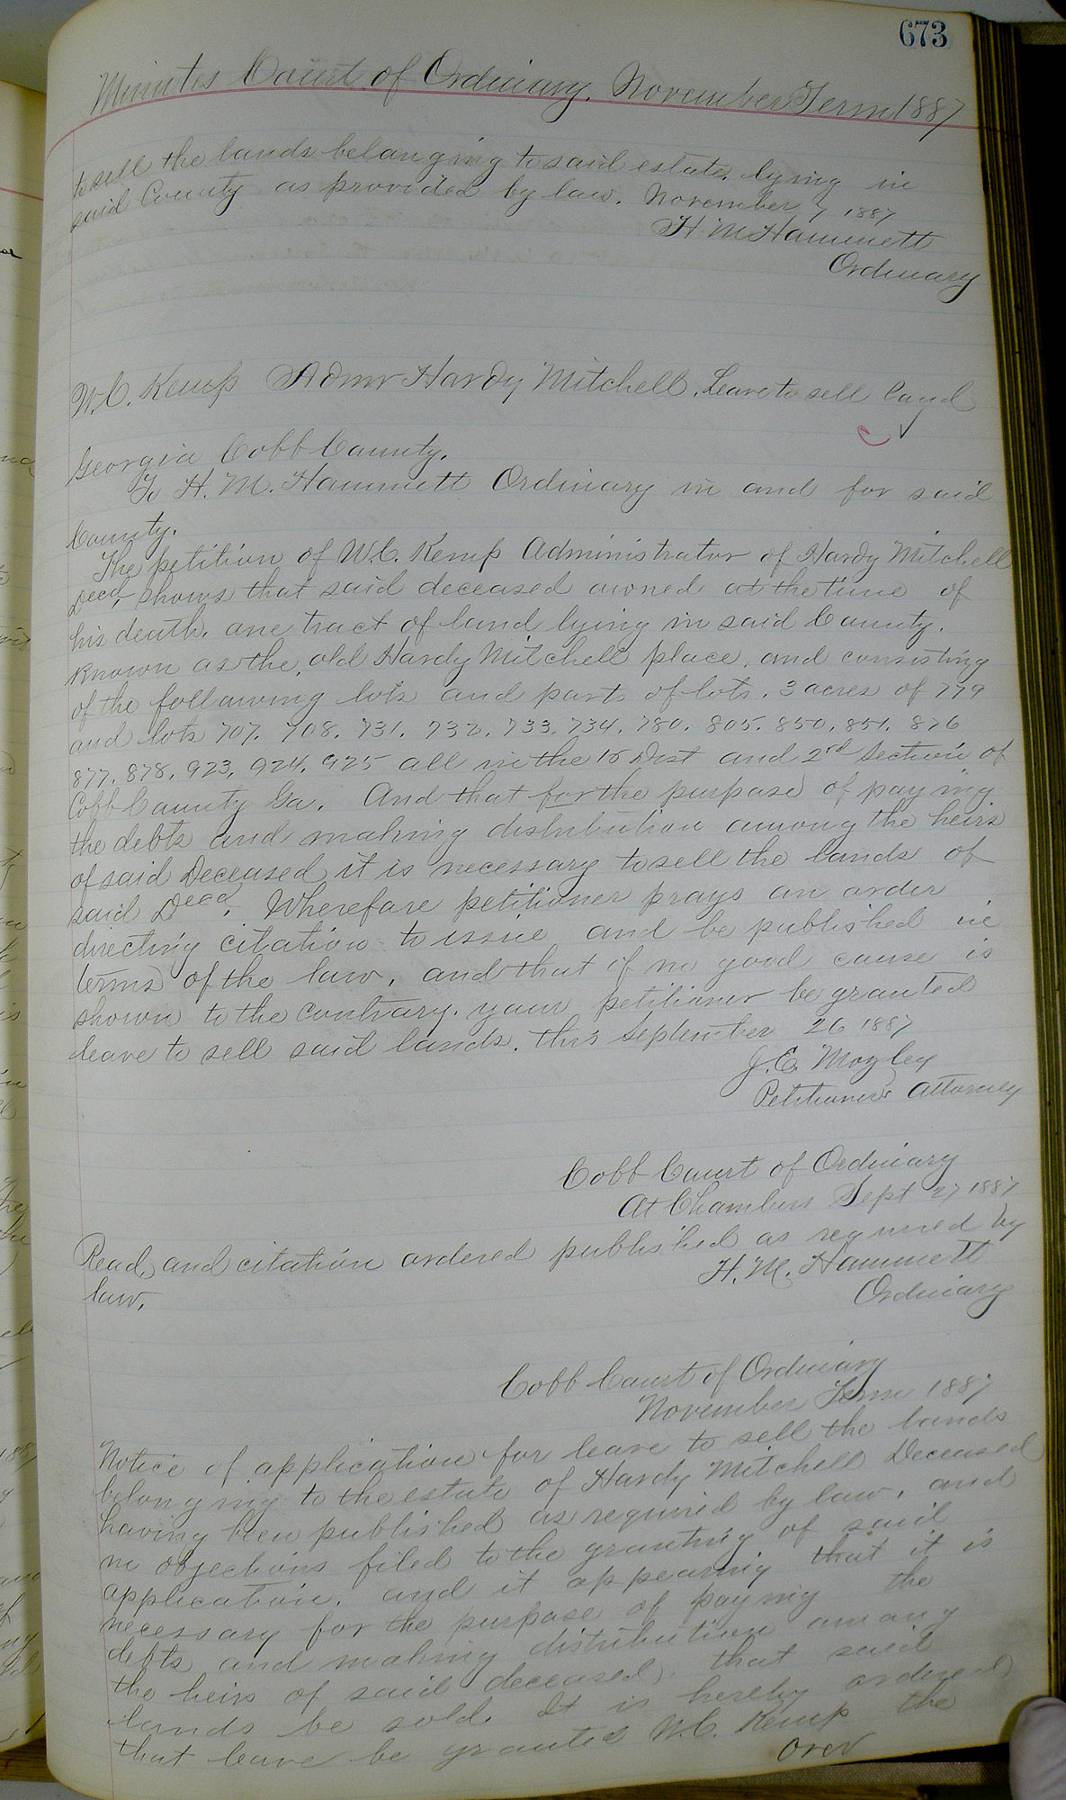 673
Minutes Court of Ordinary, November Term 1887
to sell the lands belonging to said estate, lying in
said County as provided by law. November 7 1887
H M Hammett
Ordinary
W.C. Kemp Admr Hardy Mitchell. Leave to sell land
Georgia Cobb County.
To H. M. Hammett Ordinary in and for said
County.
The petition of W.C. Kemp Administrator of Hardy Mitchell
Decd, shows that said deceased owned at the time of
his death, one tract of land lying in said County.
Known as the old Hardy Mitchell place, and consisting
of the following lots and parts of lots. 3 acres of 779
and lots 707. 708. 731. 732. 733. 734. 780. 805. 850. 851. 876
877. 878. 923. 924. 925 all in the 15 Dist and 2nd Section of
Cobb County Ga. And that for the purpose of paying
the debts and making distribution among the heirs
of said Deceased it is necessary to sell the lands of
said Decd. Wherefore petitioner prays an order
directing citation to issue and be published in
terms of the law, and that if no good cause is
shown to the contrary. your petitioner be granted
leave to sell said lands. this September 26 1887
J.E. Mozley
Petitioners Attorney
Cobb Court of Ordinary
At Chambers Sept 27 1887
Read, and citation ordered published as required by
law.
H. M. Hammett
Ordinary
Cobb Court of Ordinary
November Term 1887
Notice of application for leave to sell the lands
belonging to the estate of Hardy Mitchell Deceased
having been published as required by law, and
no objections filed to the granting of said
application. and it appearing that it is
necessary for the purpose of paying the
debts and making distribution among
the heirs of said deceased, that said
lands be sold. It is hereby ordered
that leave be granted W.C. Kemp the
over